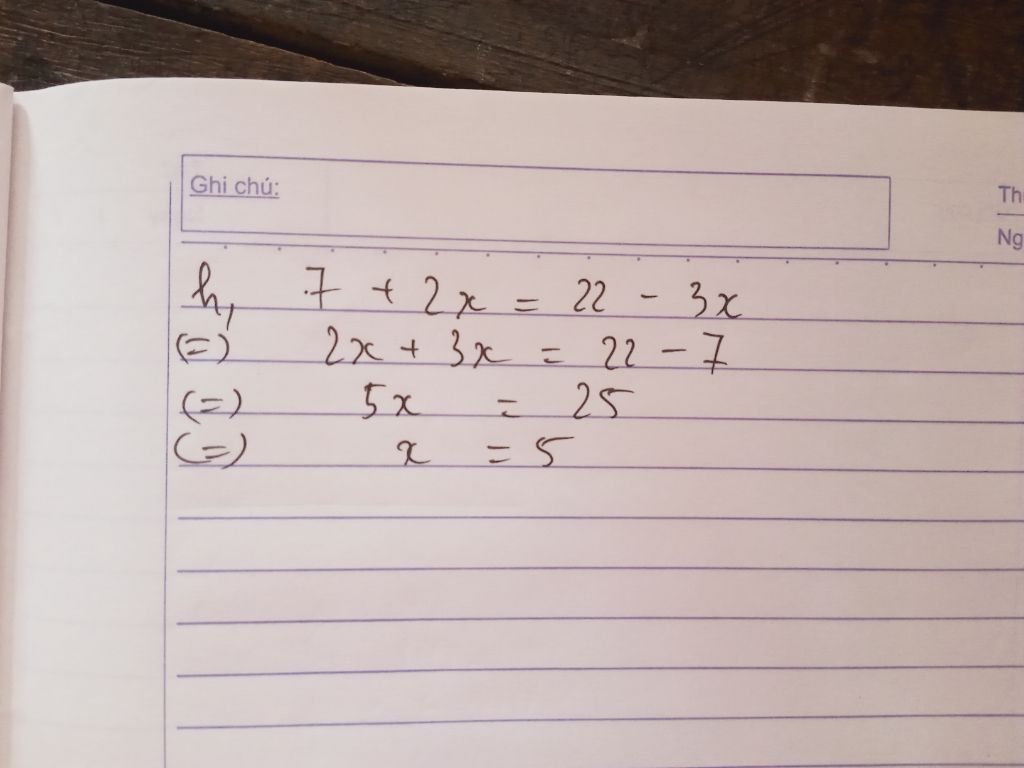 Ghi chú:
Th
Ng
h, 7 + 2x = 22 - 3x
(=) 2x + 3x = 22 - 7
(=) 5x = 25
(=) x = 5